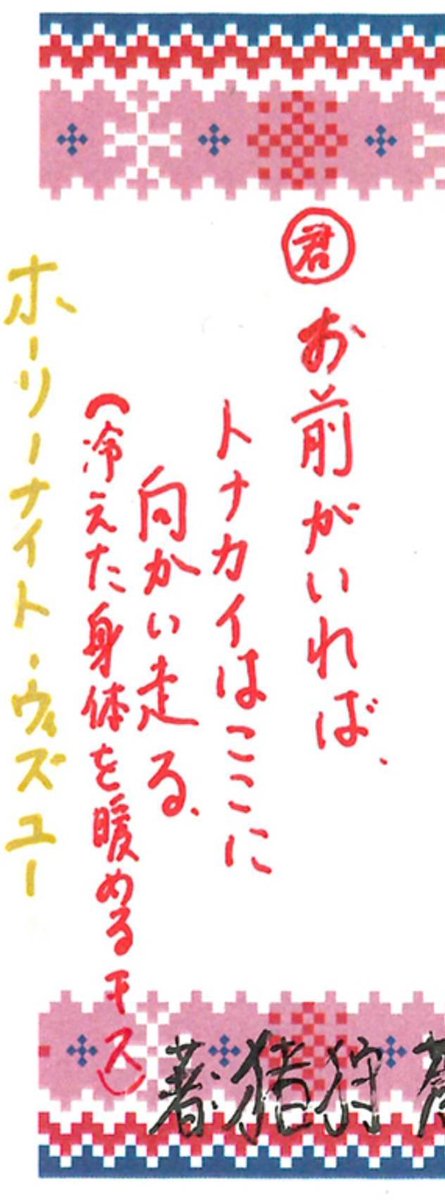 君 お前がいれば、
トナカイはここに
向かい走る。
(冷えた身体を暖めるキス)
ホーリーナイト・ウィズユー
著・猪狩蒼